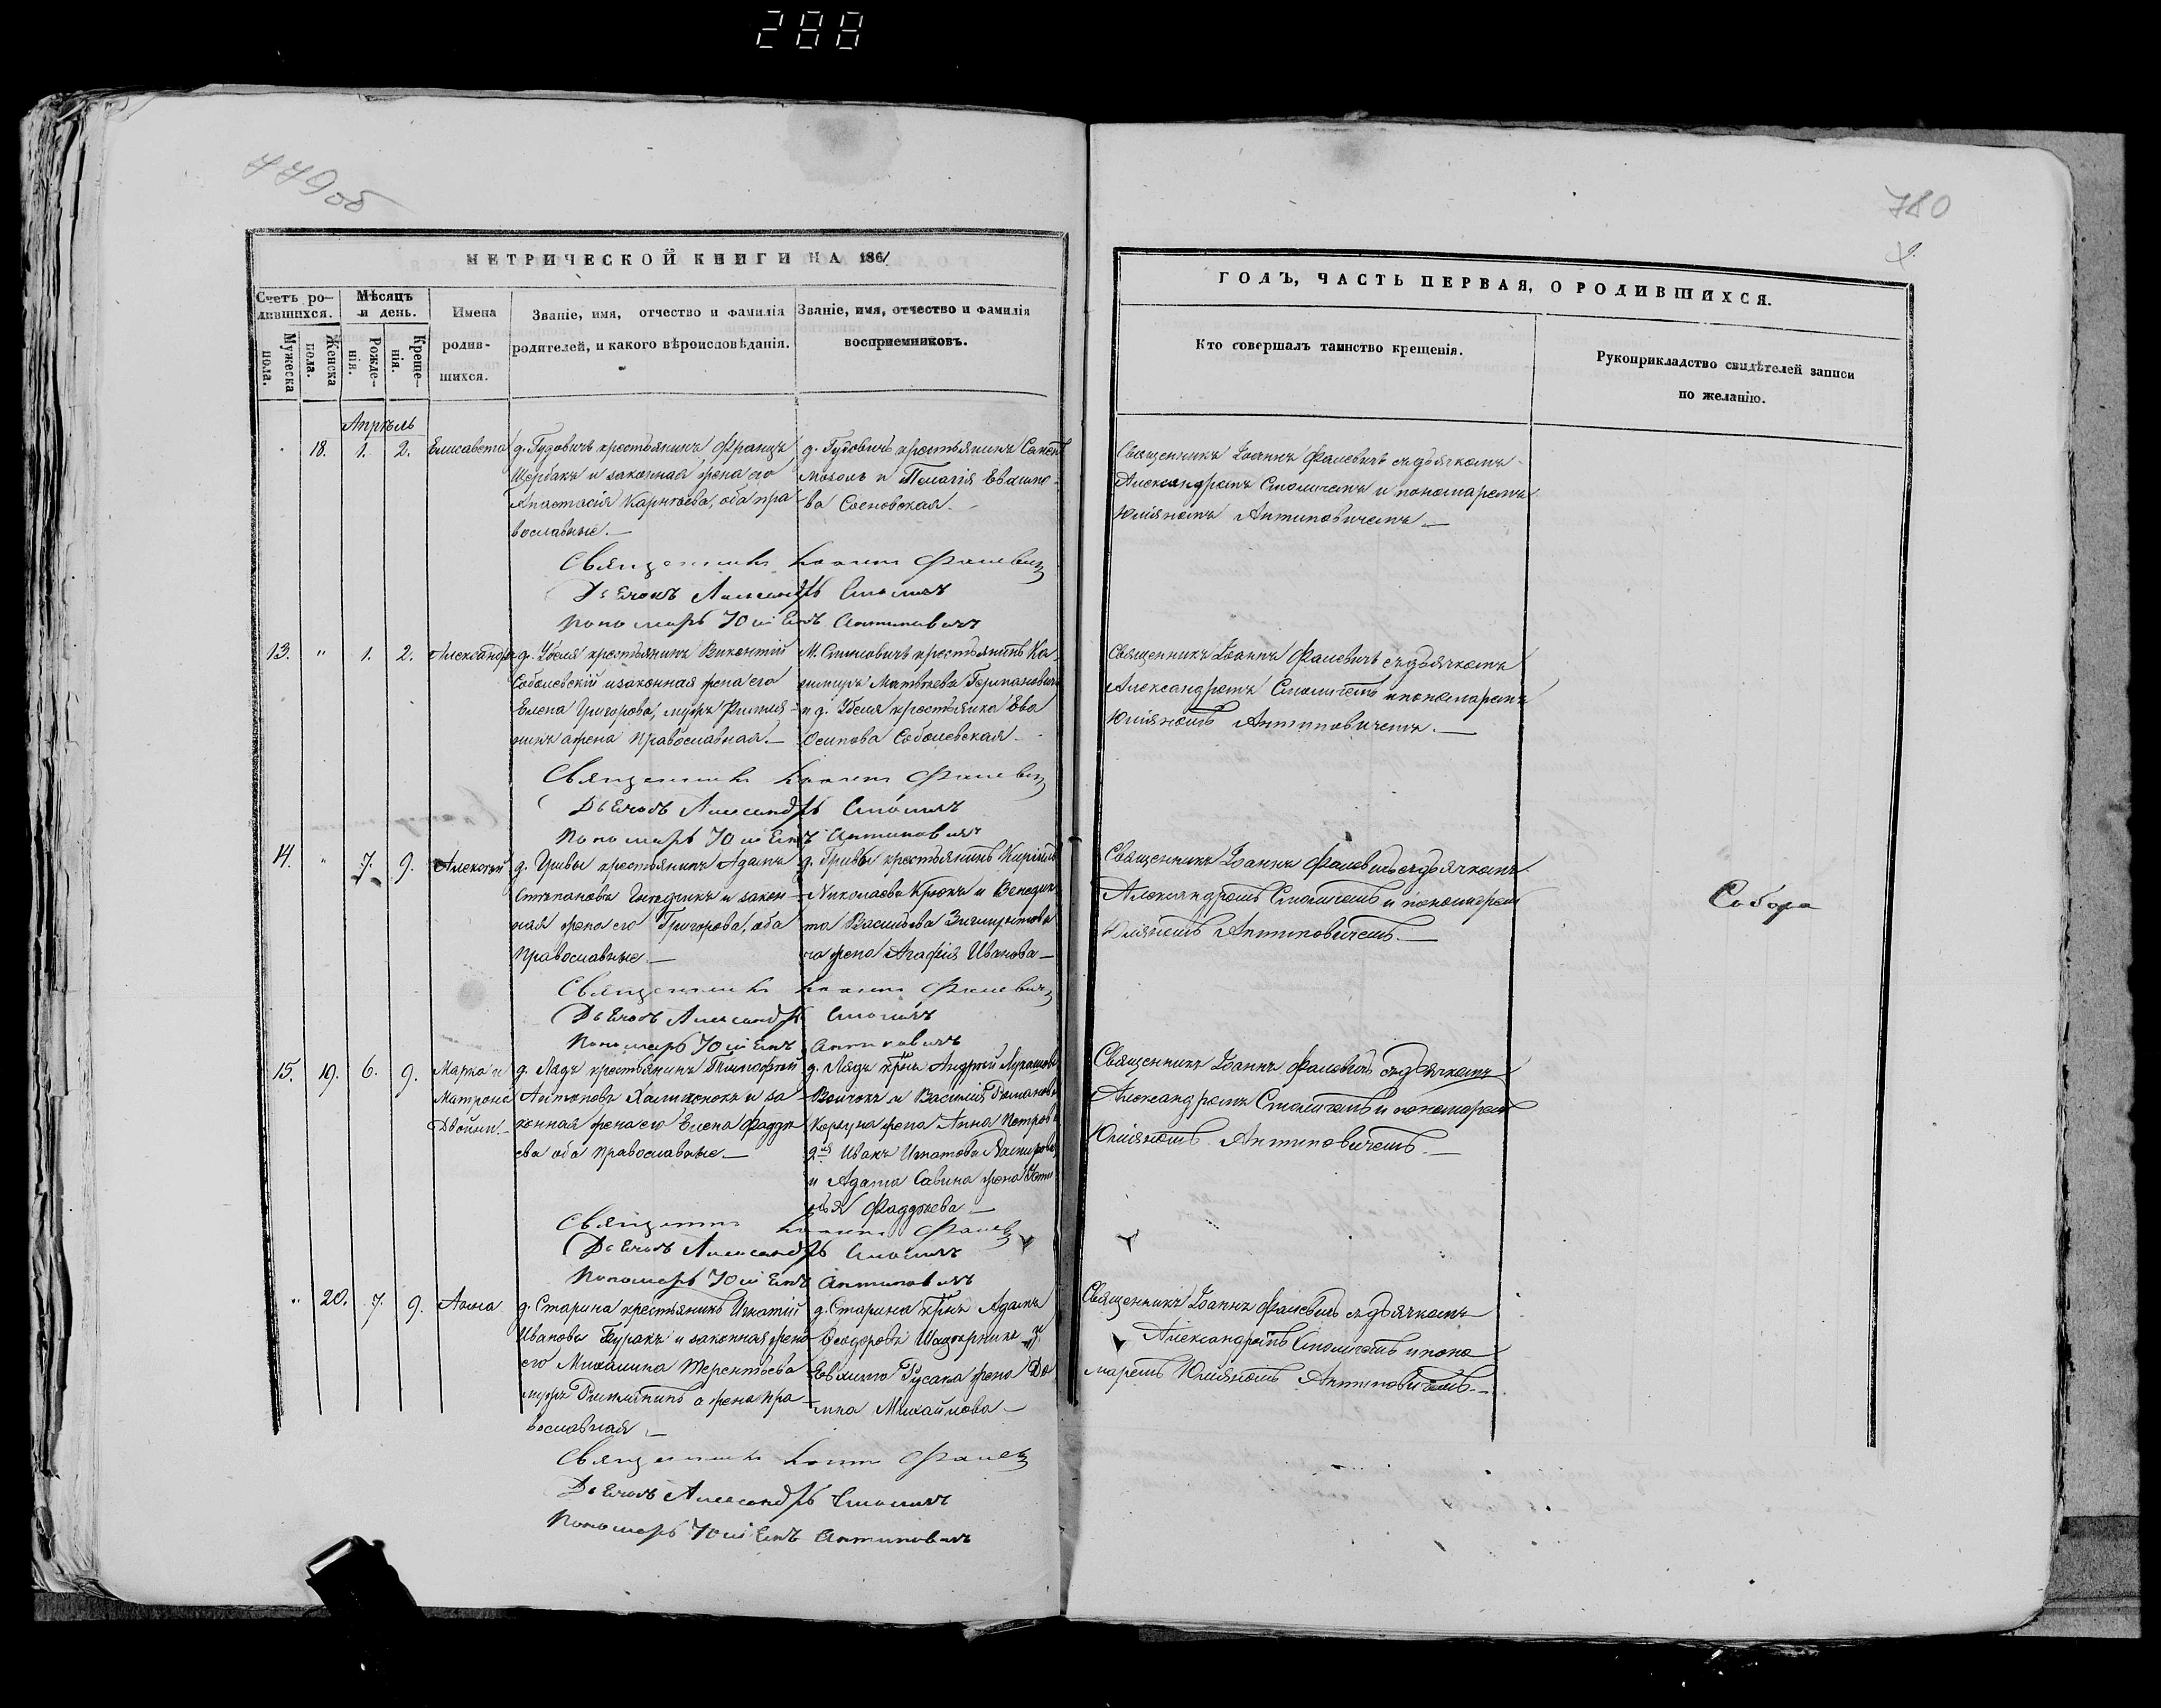 288
779об
МЕТРИЧЕСКОЙ КНИГИ НА 1861
Счетъ ро-
дившихся.
Мѣсяцъ
и день.
Мужеска
пола.
Женска
пола.
Рожде-
нія.
Креще-
нія.
Имена
родив-
шихся.
Званіе, имя, отчество и фамилія
родителей, и какого вѣроисповѣданія.
Званіе, имя, отчество и фамилія
восприемниковъ.
Апрѣль
18. 1. 2. Елисавета
д. Гудовичъ крестьянинъ Францъ
Щербакъ и законная жена его
Анастасія Карнѣева, оба пра
вославные.
д. Гудовичъ крестьянинъ
и Пелагія Евхимо-
ва Сосновская.
Священникъ Іоаннъ Фалевичъ
Дьячокъ Александръ Смоличъ
Пономарь Юліянъ Антиповичъ
13. " 1. 2. Александръ
д. Убеля крестьянинъ Викентій
Соболевскій и законная жена его
Елена Григорова, мужъ Римля-
нинъ а жена православная.
крестьянинъ Ка-
зимиръ Матвѣевъ Германовичъ
и д. Убеля крестьянка Ева
Осипова Соболевская
Священникъ Іоаннъ Фалевичъ
Дьячокъ Александръ Смоличъ
Пономарь Юліянъ Антиповичъ
14. " 7. 9. Алексѣй
д. Гривы крестьянинъ Адамъ
Степановъ и закон-
ная жена его Григорова, оба
православные
д. Гривы крестьянинъ Кириллъ
Николаевъ Крюкъ и Венедик
та Васильева
жена Агафія Иванова
Священникъ Іоаннъ Фалевичъ
Дьячокъ Александръ Смоличъ
Пономарь Юліянъ Антиповичъ
15. 19. 6. 9. Марка и
Матрона
Двойни.
д. Лядъ крестьянинъ Тимофей
Антоновъ и за
конная жена его Елена Фадде
ева оба православные
д. Лядъ Андрей
и Василія Романова
жена Анна Петрова
2е Иванъ Игнатовъ
и Адама Савина жена
Фаддѣева
Священникъ Іоаннъ Фалевичъ
Дьячокъ Александръ Смоличъ
Пономарь Юліянъ Антиповичъ
" 20. 7. 9. Анна
д. Старина крестьянинъ Игнатій
Ивановъ Буракъ и законная жена
его Михалина Терентьева
мужъ Римлянинъ а жена пра-
вославная
д. Старина Адамъ
Ѳеодоровъ и
Евхима Гусака жена До
мна Михайлова
Священникъ Іоаннъ Фалевичъ
Дьячокъ Александръ Смоличъ
Пономарь Юліянъ Антиповичъ
780
ГОДЪ, ЧАСТЬ ПЕРВАЯ, О РОДИВШИХСЯ.
Кто совершалъ таинство крещенія.
Рукоприкладство свидѣтелей записи
по желанію.
Священникъ Іоаннъ Фалевичъ съ дьячкомъ
Александромъ Смоличемъ и пономаремъ
Юліяномъ Антиповичемъ
Священникъ Іоаннъ Фалевичъ съ дьячкомъ
Александромъ Смоличемъ и пономаремъ
Юліяномъ Антиповичемъ.
Священникъ Іоаннъ Фалевичъ съ дьячкомъ
Александромъ Смоличемъ и пономаремъ
Юліяномъ Антиповичемъ.
Собора
Священникъ Іоаннъ Фалевичъ съ дьячкомъ
Александромъ Смоличемъ и пономаремъ
Юліяномъ Антиповичемъ.
Священникъ Іоаннъ Фалевичъ съ дьячкомъ
Александромъ Смоличемъ и поно
маремъ Юліяномъ Антиповичемъ.